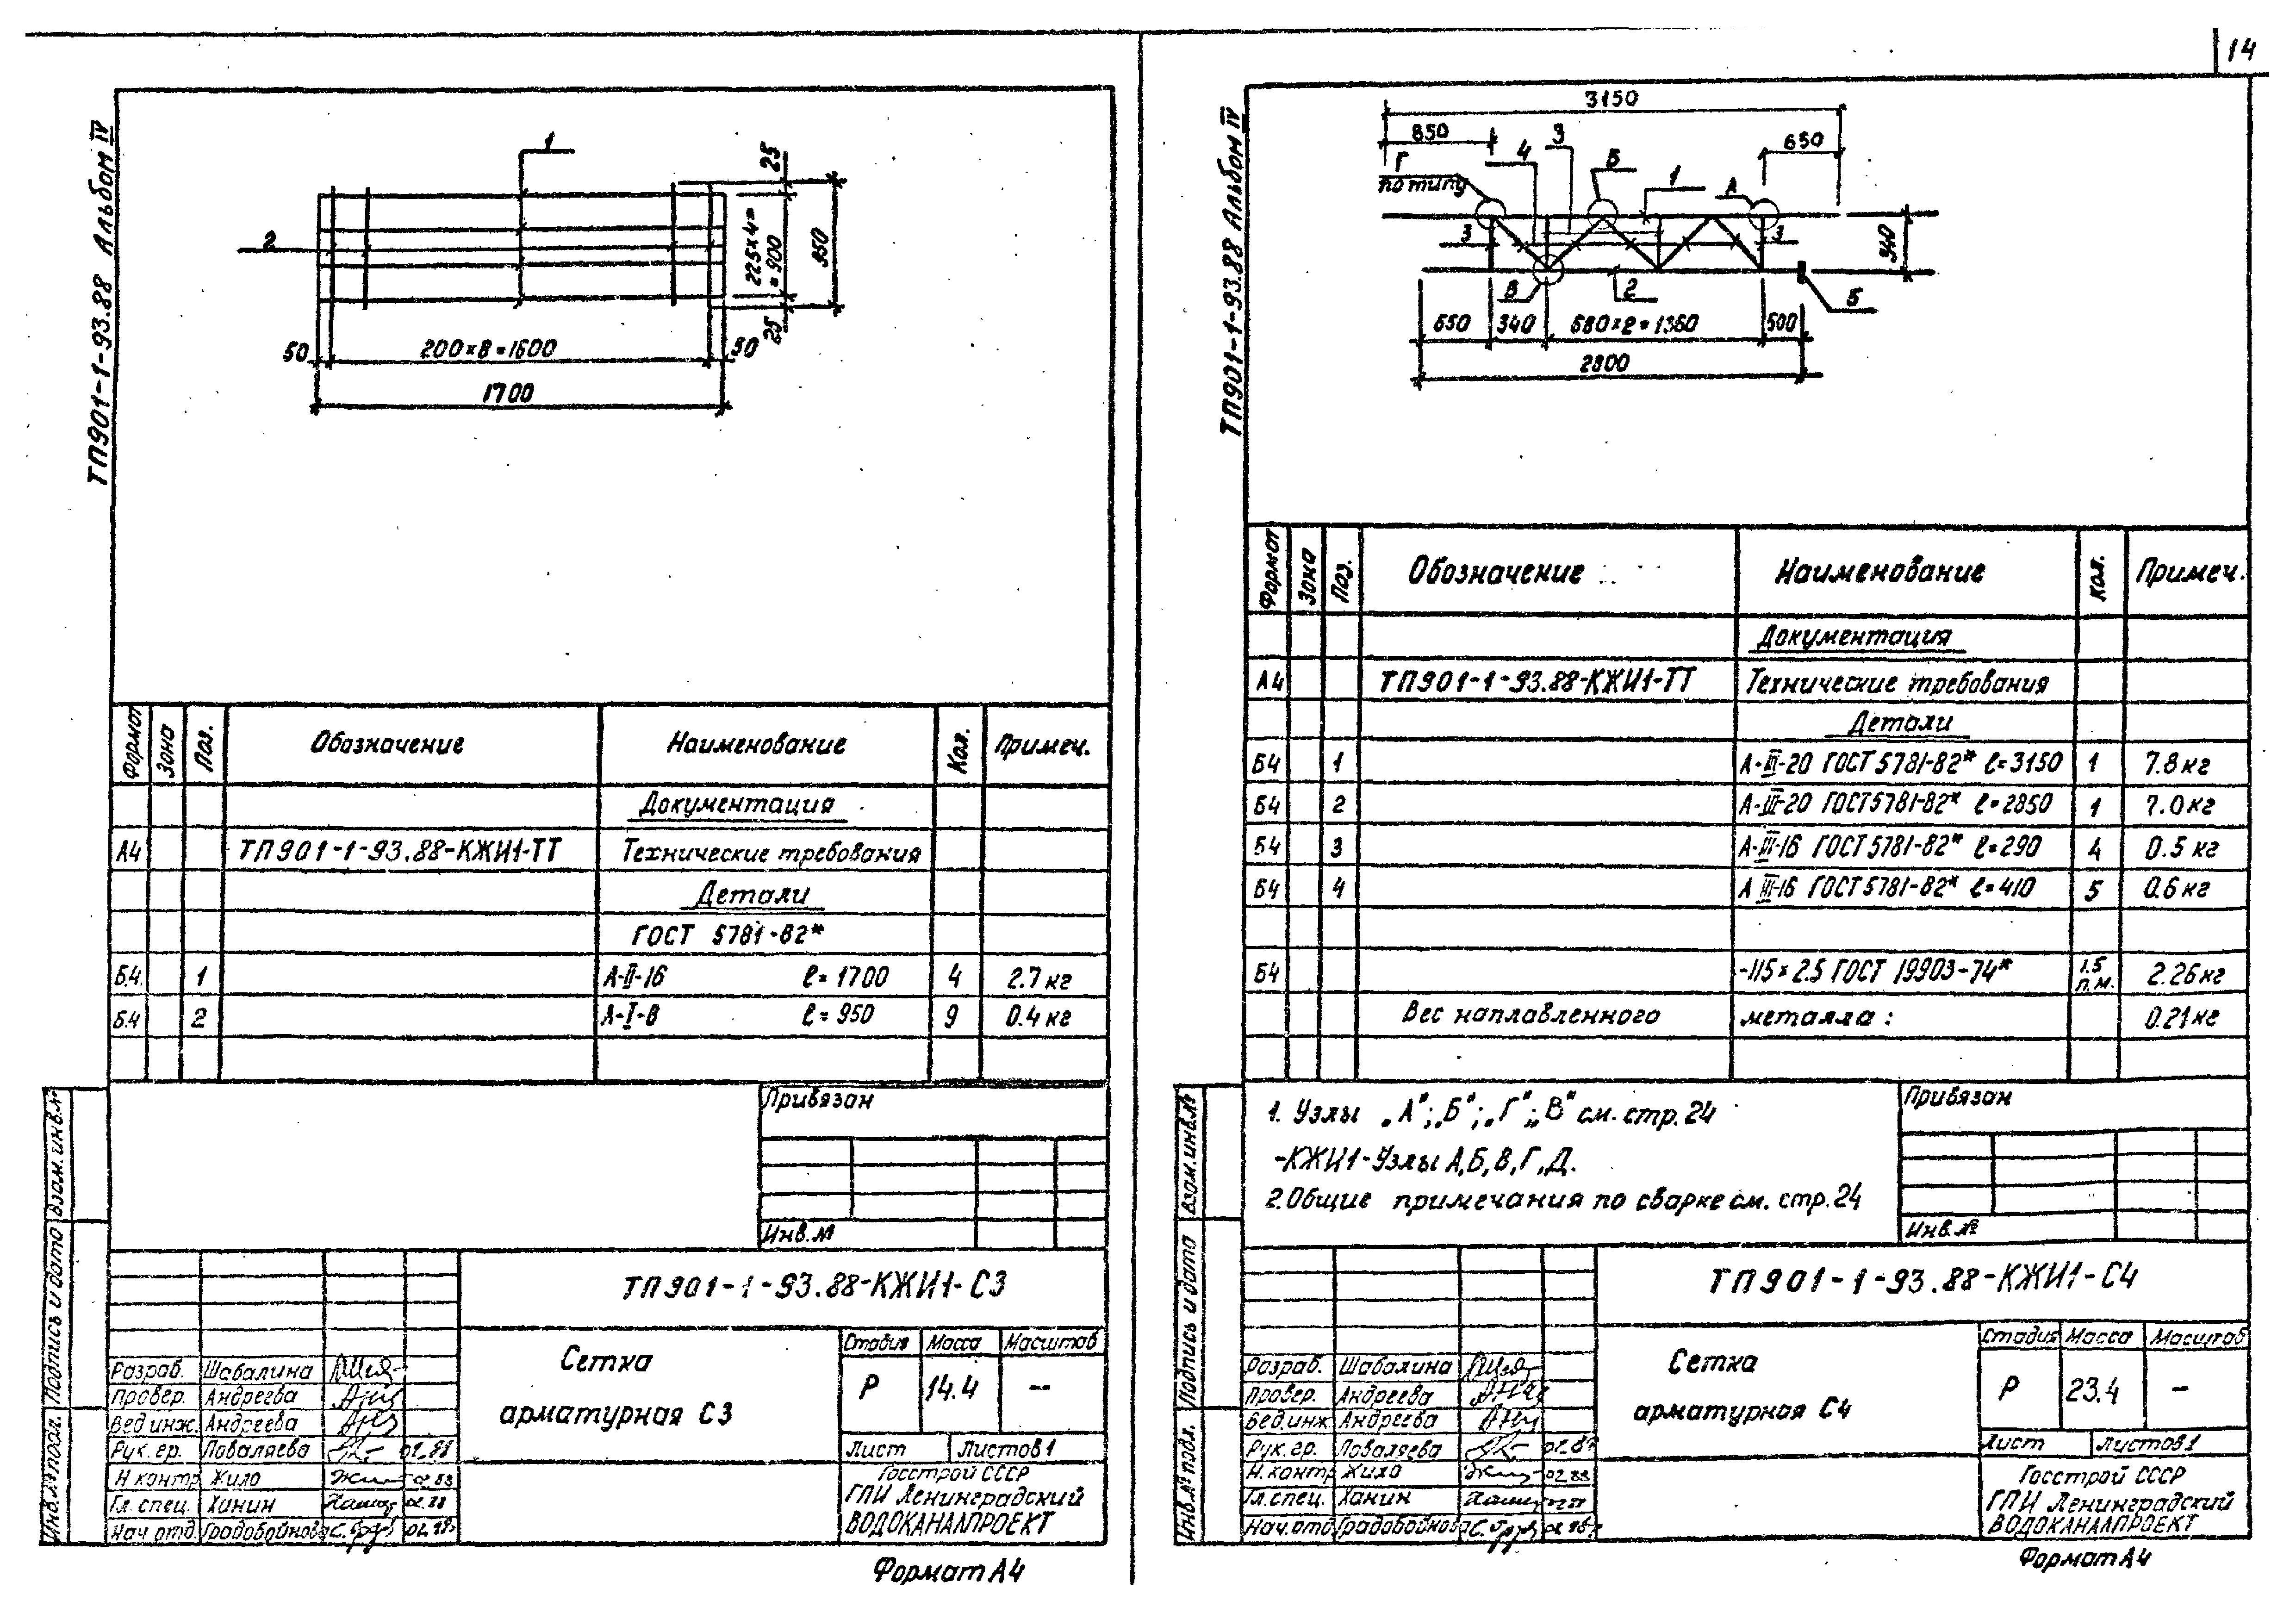 14
ТП901-1-93.88 Альбом IV
1
2
25
225×4=
=900
950
25
50
200×8=1600
50
1700
Формат Зона Поз. Обозначение Наименование Кол. Примеч.
Документация
А4 ТП901-1-93.88-КЖИ1-ТТ Технические требования
Детали
ГОСТ 5781-82*
Б4. 1 А-II-16 ℓ=1700 4 2.7 кг
Б.4 2 А-I-8 ℓ=950 9 0.4 кг
Привязан
Инв.№
Взам. инв.№
Подпись и дата
Инв.№ подл.
ТП901-1-93.88-КЖИ1-С3
Сетка
арматурная С3
Стадия Масса Масштаб
Р 14.4 --
Лист Листов 1
Госстрой СССР
ГПИ Ленинградский
ВОДОКАНАЛПРОЕКТ
Разраб. Шабалина
Провер. Андреева
Вед инж. Андреева
Рук. гр. Поваляева 02.88
Н контр Жило 02.88
Гл. спец. Ханин 02.88
Нач. отд. Градобойнова 02.88
Формат А4
ТП901-1-93.88 Альбом IV
3150
850
650
Г
по типу
4
3
Б
1
А
3
3
340
В
2
Б
650 340 680×2=1360 500
2800
Формат Зона Поз. Обозначение Наименование Кол. Примеч.
Документация
А4 ТП901-1-93.88-КЖИ1-ТТ Технические требования
Детали
Б4 1 А-III-20 ГОСТ 5781-82* ℓ=3150 1 7.8 кг
Б4 2 А-III-20 ГОСТ 5781-82* ℓ=2850 1 7.0 кг
Б4 3 А-III-16 ГОСТ 5781-82* ℓ=290 4 0.5 кг
Б4 4 А III-16 ГОСТ 5781-82* ℓ=410 5 0.6 кг
Б4 -115×2.5 ГОСТ 19903-74* 1.5 п.м. 2.26 кг
Вес наплавленного металла: 0.21 кг
1. Узлы „А"; „Б"; „Г"; „В" см. стр. 24
-КЖИ1-Узлы А,Б,В,Г,Д.
2. Общие примечания по сварке см. стр. 24
Привязан
Инв.№
Взам. инв.№
Подпись и дата
Инв.№ подл.
ТП901-1-93.88-КЖИ1-С4
Сетка
арматурная С4
Стадия Масса Масштаб
Р 23.4 –
Лист Листов 1
Госстрой СССР
ГПИ Ленинградский
ВОДОКАНАЛПРОЕКТ
Разраб. Шабалина
Провер. Андреева
Вед.инж Андреева
Рук. гр. Поваляева
Н. контр Жило 02.88
Гл. спец. Ханин
Нач. отд Градобойнова
Формат А4